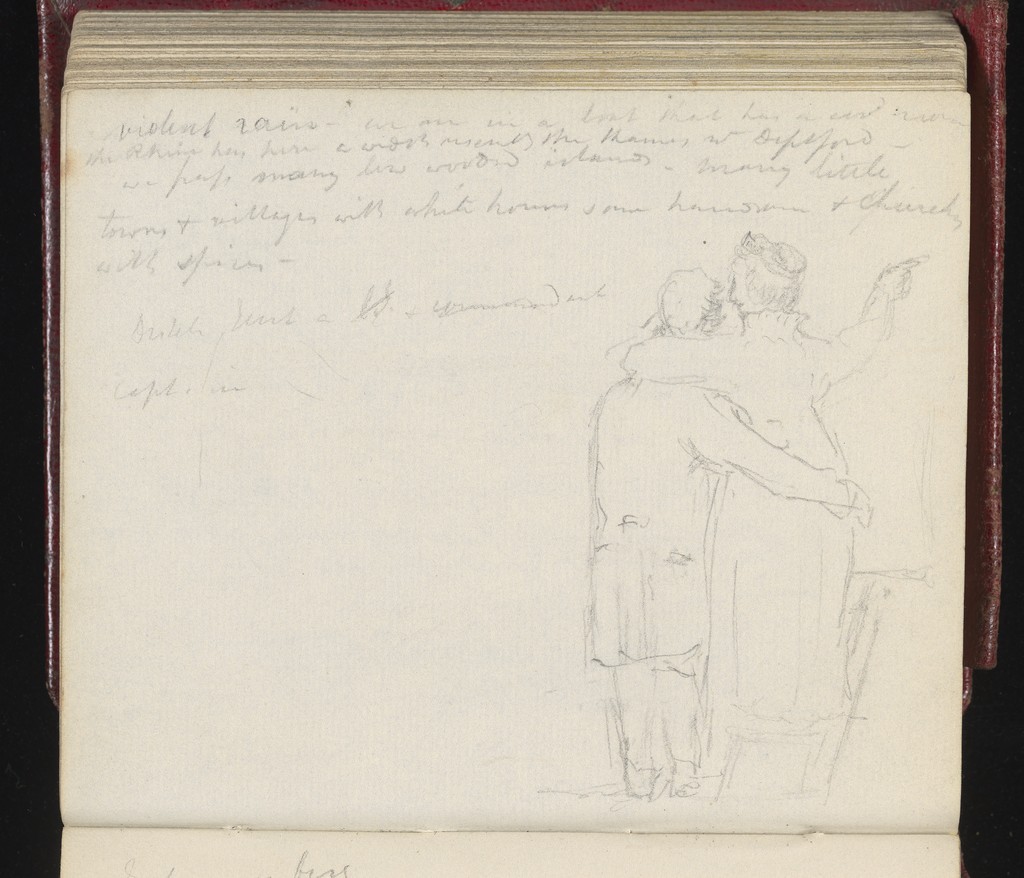 violent rain - we are in a boat that has a
the Rhine has here a width resembg the Thames at Deptford -
we pass many low wooded islands - many little
towns & villages with white houses some handsome & Churches
with spires -
Dutch & commandant
Capt. in